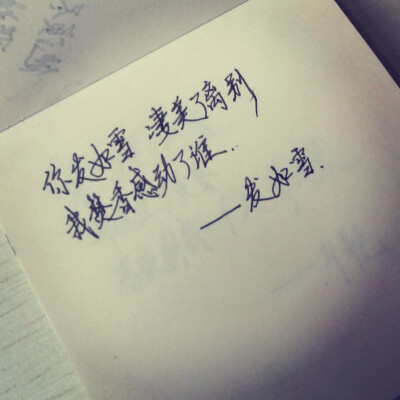 你发如雪 凄美了离别
我焚香感动了谁..
——发如雪.